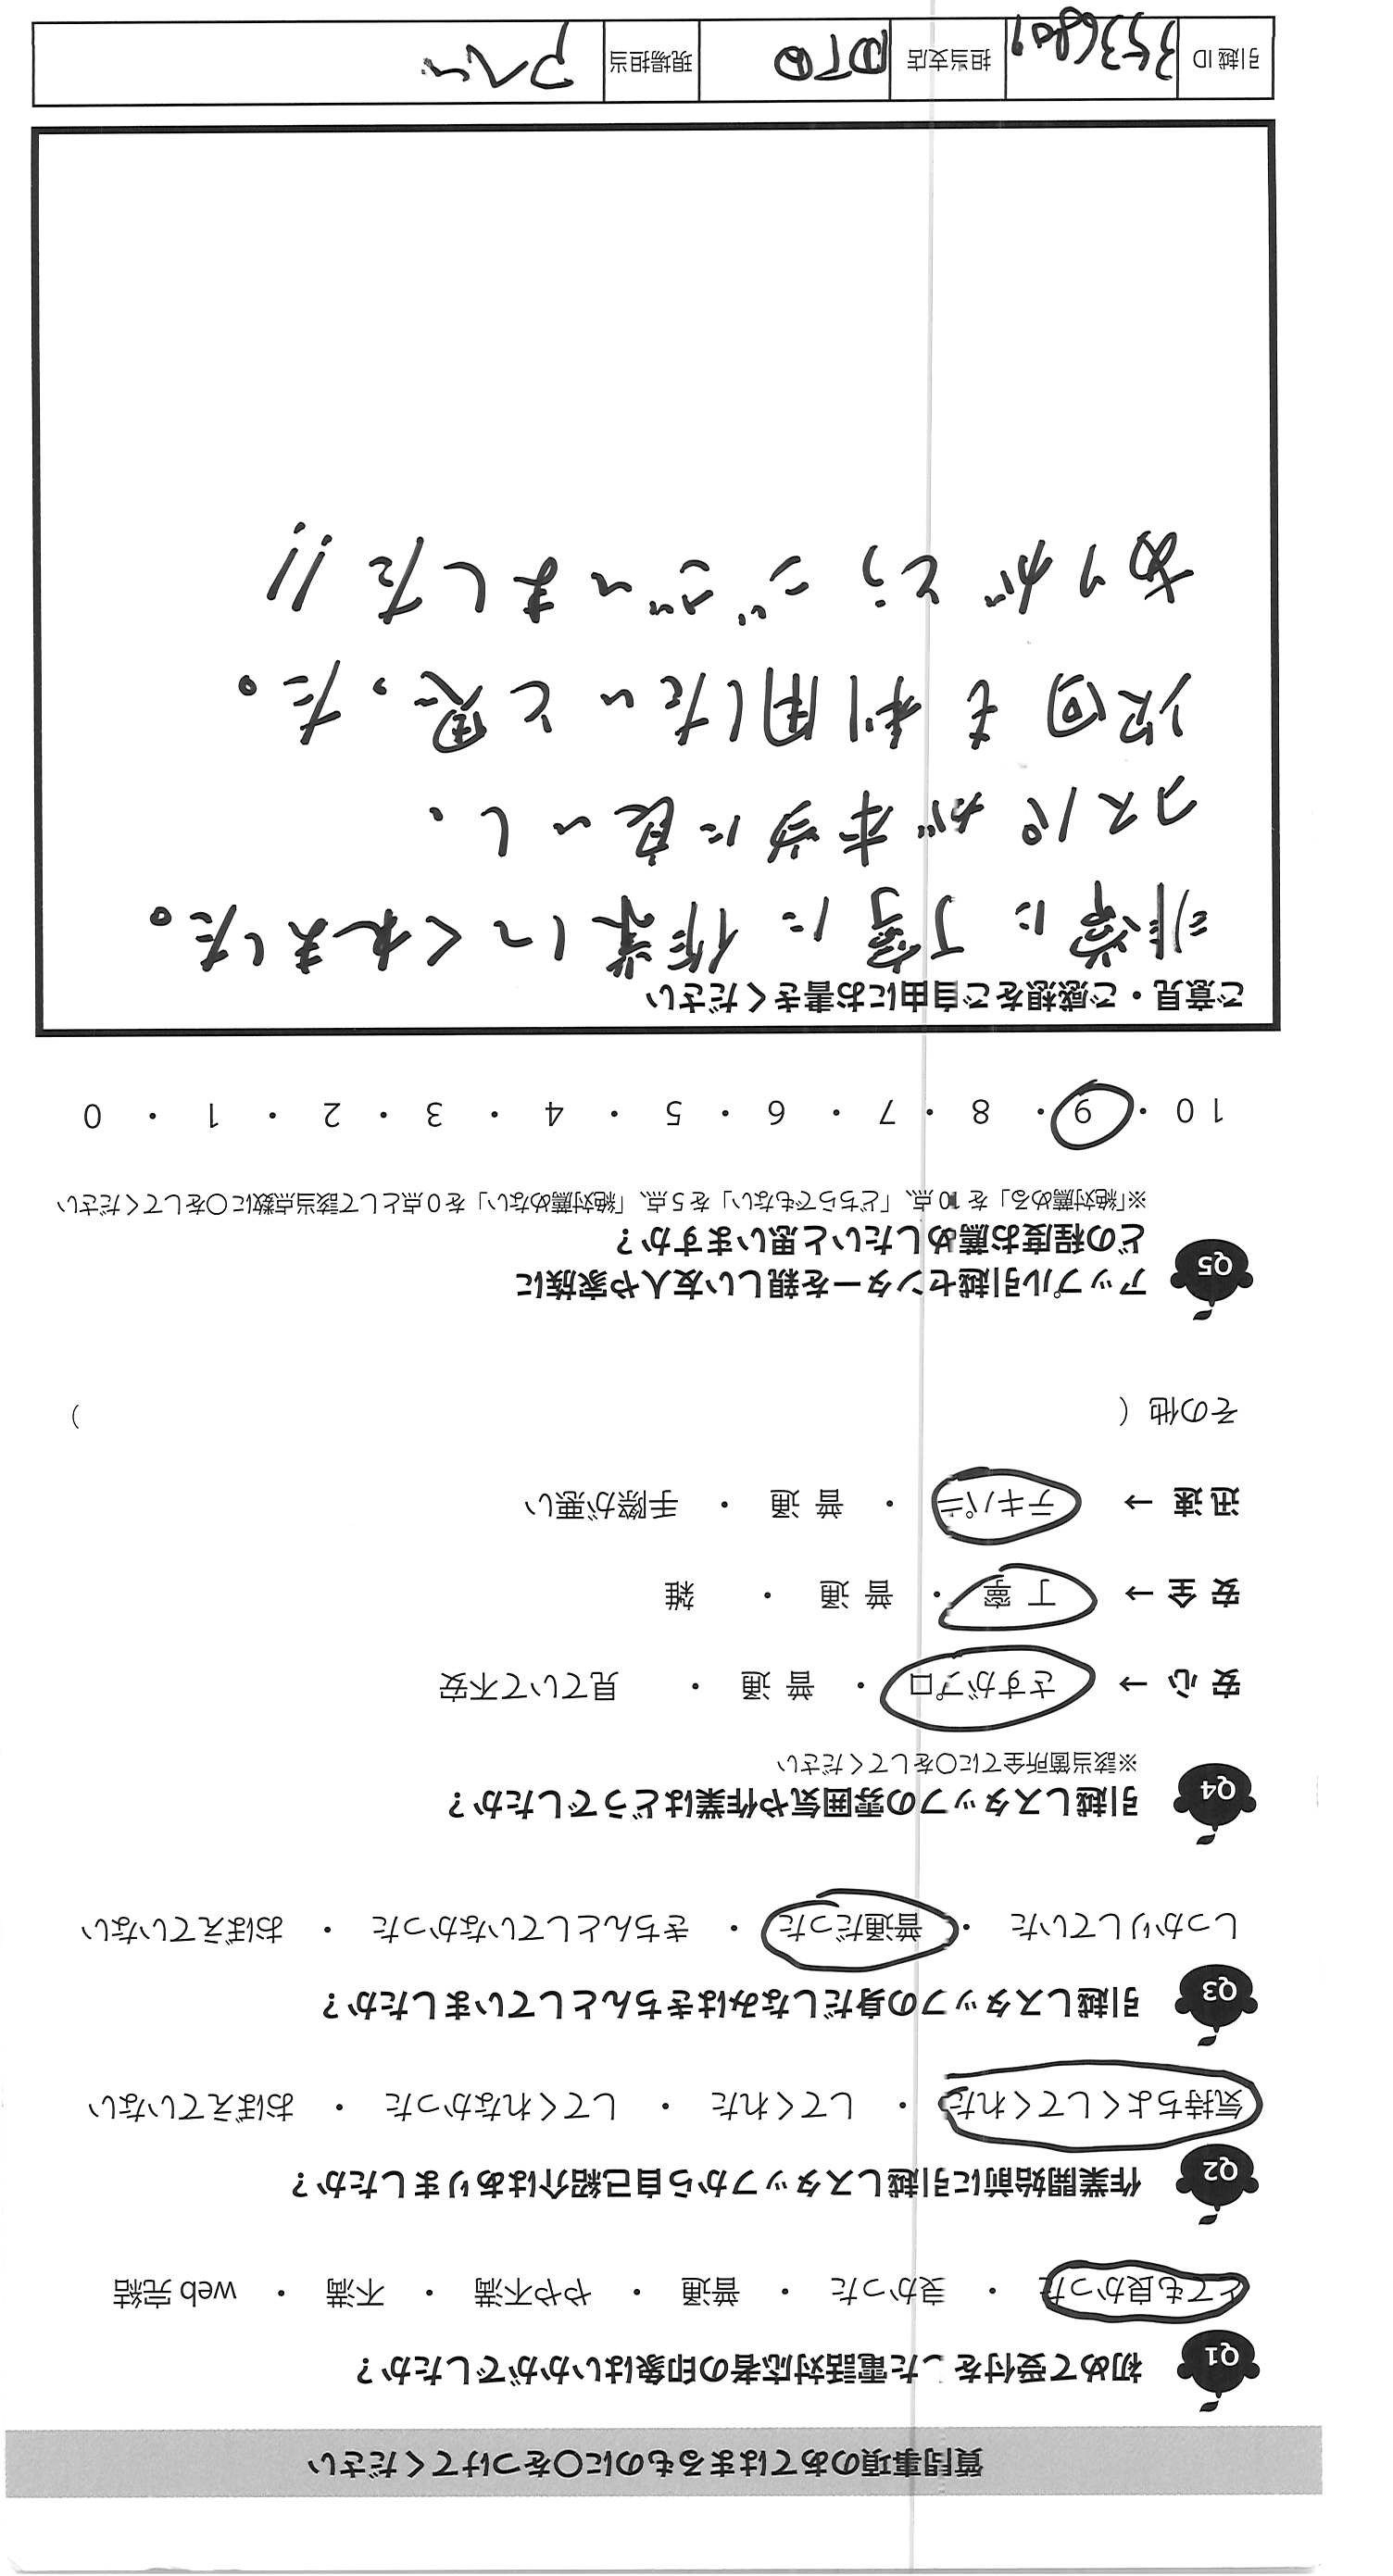 質問事項のあてはまるものに〇をつけてください
Q1 初めて受付をした電話対応者の印象はいかがでしたか？
とても良かった ・ 良かった ・ 普通 ・ やや不満 ・ 不満 ・ web 完結
Q2 作業開始前に引越しスタッフから自己紹介はありましたか？
気持ちよくしてくれた ・ してくれた ・ してくれなかった ・ おぼえていない
Q3 引越しスタッフの身だしなみはきちんとしていましたか？
しっかりしていた ・ 普通だった ・ きちんとしていなかった ・ おぼえていない
Q4 引越しスタッフの雰囲気や作業はどうでしたか？
※該当箇所全てに〇をしてください
安 心 → さすがプロ ・ 普 通 ・ 見ていて不安
安 全 → 丁 寧 ・ 普 通 ・ 雑
迅 速 → テキパキ ・ 普 通 ・ 手際が悪い
その他（ ）
Q5 アップル引越センターを親しい友人や家族に
どの程度お薦めしたいと思いますか？
※「絶対薦める」を 10 点、「どちらでもない」を 5 点、「絶対薦めない」を 0 点として該当点数に〇をしてください
10 ・ 9 ・ 8 ・ 7 ・ 6 ・ 5 ・ 4 ・ 3 ・ 2 ・ 1 ・ 0
ご意見・ご感想をご自由にお書きください
非常に丁寧に作業してくれました。
コスパが本当に良いし、
次回も利用したいと思った。
ありがとうございました!!
引越 ID 3536809 担当支店 現場担当 アベ